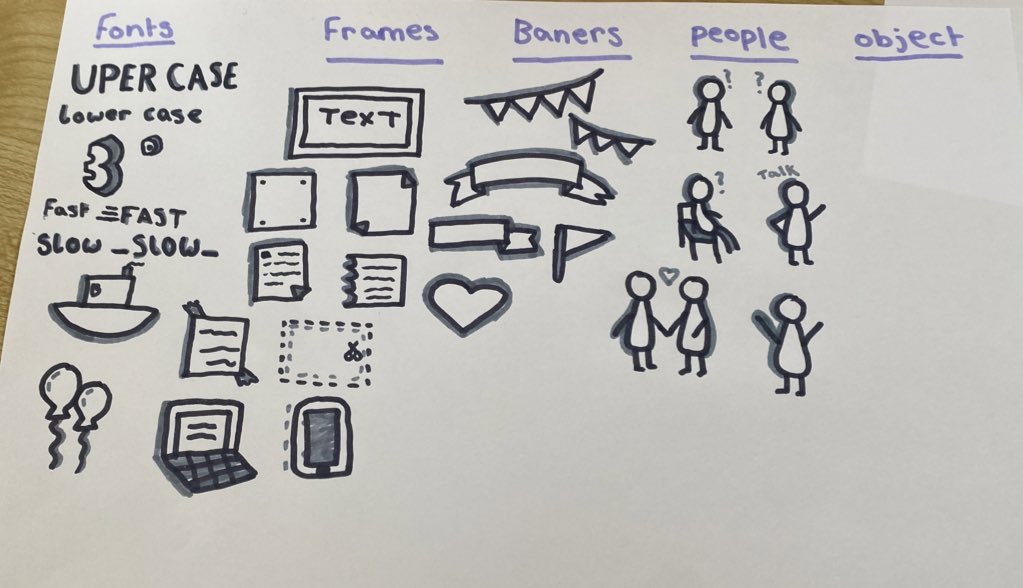 Fonts
Frames
Baners
people
object
UPER CASE
Lower case
3
TEXT
? ?
Fast FAST
SLOW _SLOW_
?
Talk